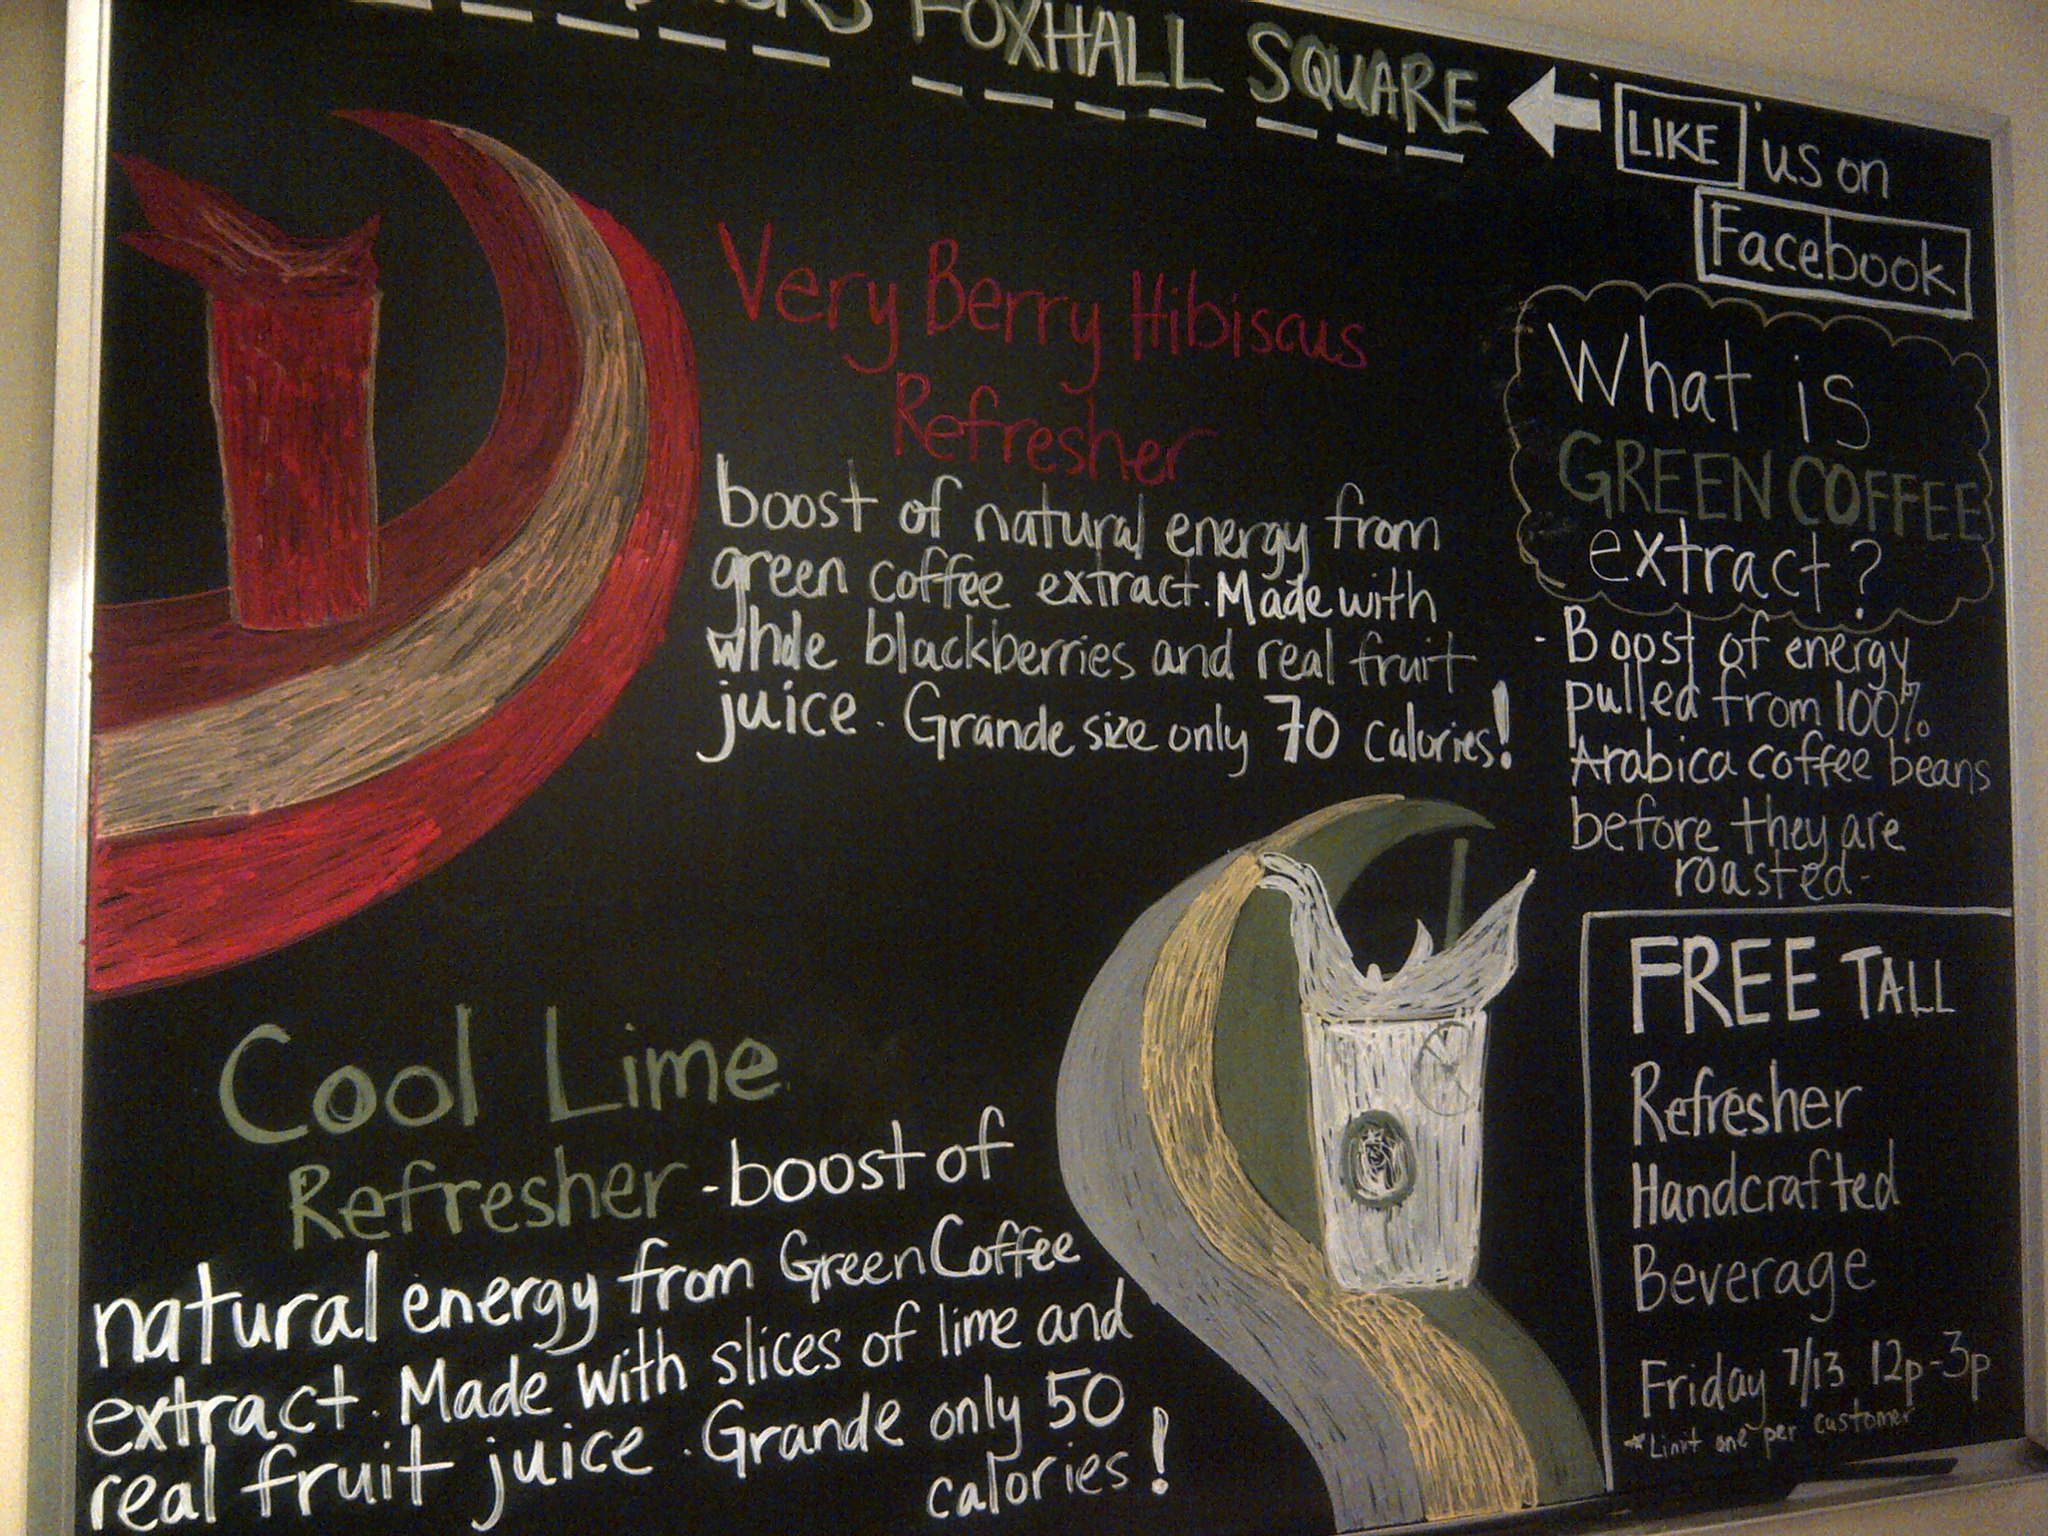 FOXHALL SQUARE
"LIKE" us on
Facebook
Very Berry Hibiscus
Refresher
boost of natural energy from
green coffee extract. Made with
whole blackberries and real fruit
juice. Grande size only 70 calories!
What is
GREEN COFFEE
extract?
- Boost of energy
pulled from 100%
Arabica coffee beans
before they are
roasted-
Cool Lime
Refresher - boost of
natural energy from Green Coffee
extract. Made with slices of lime and
real fruit juice. Grande only 50
calories!
FREE TALL
Refresher
Handcrafted
Beverage
Friday 7/13 12p-3p
*Limit one per customer